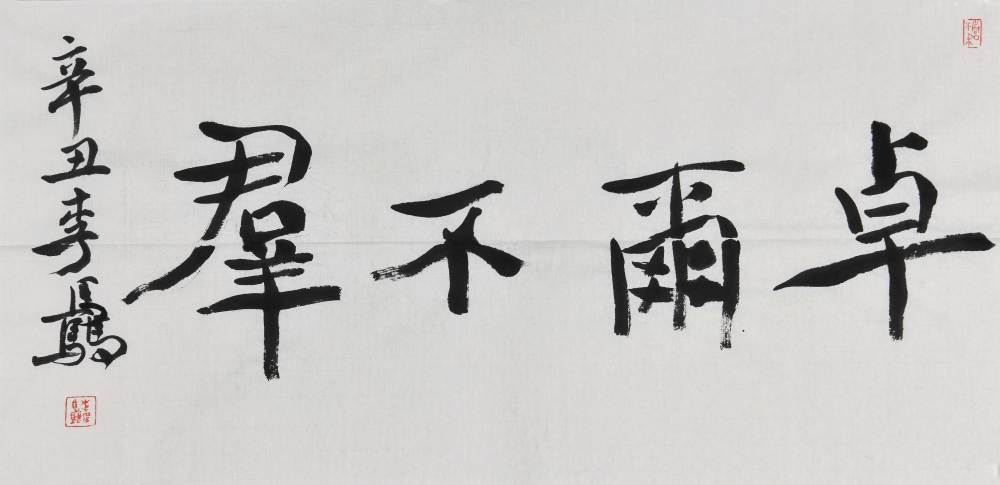 卓爾不羣
辛丑李驫